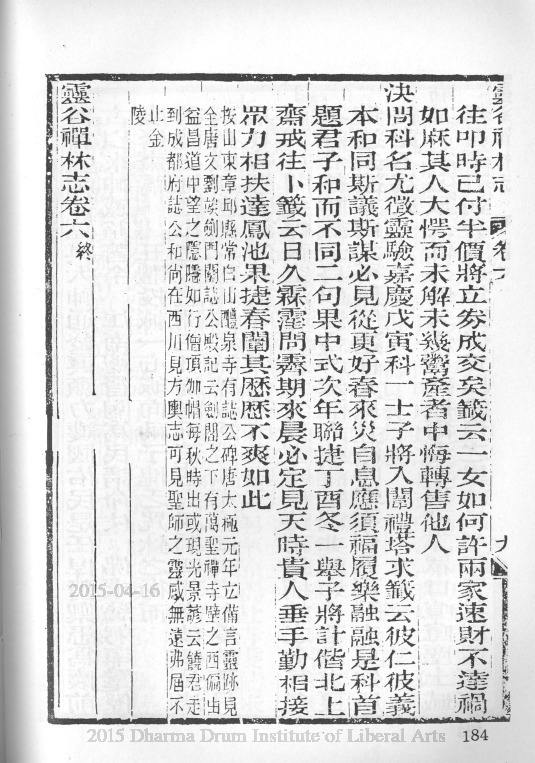 靈谷禪林志 卷六 九
往叩時已付半價將立券成交矣籤云一女如何許兩家速財不達禍
如麻其人大愕而未解未幾鬻產者中悔轉售他人
決問科名尤徵靈驗嘉慶戊寅科一士子將入闈禮塔求籤云彼仁彼義
本和同斯議斯謀必見從更好春來災自息應須福履樂融融是科首
題君子和而不同二句果中式次年聯捷丁酉冬一舉子將計偕北上
齋戒往卜籤云日久霖霪問霽期來晨必定見天時貴人垂手勤相接
眾力相扶達鳳池果捷春闈其歷歷不爽如此
按山東章邱縣常白山醴泉寺有誌公碑唐太極元年立備言靈跡見
全唐文劉𡹘劍門閣誌公殿記云劍閣之下有萬聖禪寺壁之西偏出
益昌道中望之隱隱如行僧頂伽帽每秋時出或現光景諺云饒君走
到成都府誌公和尚在西川見方輿志可見聖師之靈感無遠弗屆不
止金
陵
靈谷禪林志卷六 終
2015-04-16
2015 Dharma Drum Institute of Liberal Arts
184